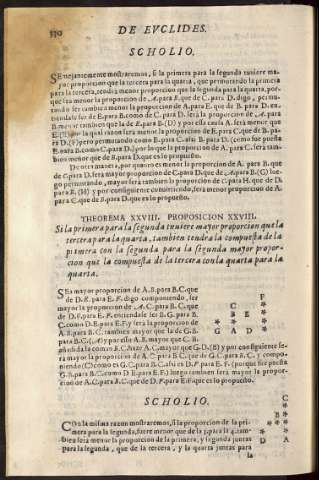 330
DE EVCLIDES.
SCHOLIO.
SEmejantemente mostraremos, si la primera para la segunda tuviere ma-
yor proporcion que la tercera para la quarta, que permutando la primera
para la tercera, tendra menor proporcion que la segunda para la quarta, por-
que sea menor la proporcion de .A. para B. que de C. para D. digo, permu-
tando ser tambien menor la proporcion de A. para
tendase ser de E. para B. como de C. para D. será la proporcion de .A. para
B. menor tambien que la de E. para B.
por la qual razon será menor la proporcion de
pero permutando como E. para C. assi B. para D. (como fue
E. para B. como C. para D.) por lo que la proporcion de A. para C. será tam-
bien menor que de B. para D. que es lo propuesto.
De otra manera, por quanto es menor la proporcion de A. para B. que
de C. para D. será mayor proporcion de C. para D. que de .A. para B.
go permutando, mayor será tambien la proporcion de C. para
para B. y por consiguiente convirtiendo, será menor proporcion de A.
para C. que de B. para D. que es lo propuesto.
THEOREMA XXVIII. PROPOSICION XXVIII.
Si la primera para la segunda tuviere mayor proporcion que la
tercera para la quarta, tambien tendra la compuesta de la
primera con la segunda para la segunda mayor propor-
cion que la compuesta de la tercera con la quarta para la
quarta.
SEa mayor proporcion de A.B. para B.C. que
de D.E. para E.F. digo componiendo, ser
mayor la proporcion de .A.C. para B.C. que
de D.F. para E.F. entiendase ser G.B. para B.
C. como D.E. para E.F. y será la proporcion de
A.B. para B.C. tambien mayor que la de G.B.
para B.C. y por esso A.B. mayor que G.B.
añadida la comun B.C. hará A.C. mayor que G. y por consiguiente se-
ra mayor la proporcion de A.C. para B.C. que de G.C. para B.C. y compo-
niendo como es G.C. para B.C. assi es D.F. para E.F. (por que fue puesto
G.B. para B.C. como D.E. para E.F.) luego tambien será mayor la propor-
cion de A.C. para B.C. que de D.F. para E.F. que es lo propuesto.
F
C *
* B E *
* * * *
G A D *
SCHOLIO.
COn la misma razon mostraremos, si la proporcion de la pri-
mera para la segunda, fuere menor que de la 3. para la 4. tam-
bien será menor la proporcion de la primera, y segunda juntas
para la segunda, que de la tercera, y la quarta juntas para
la
C
B *
* *
* *
D A